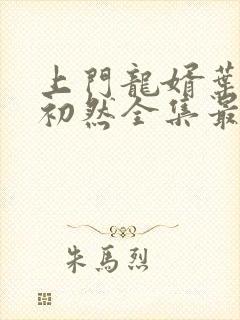 上門龍婿葉
初然全集最
朱馬烈